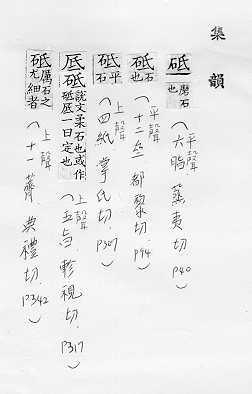 集韻
砥 磨石也（平聲六脂 蒸夷切 P40）
砥 石也（平聲十二𠫼 都黎切 P94）
砥 平石（上聲四紙 掌氏切 P307）
底砥 說文柔石也或作砥底一曰定也（上聲五旨 軫視切 P317）
砥 厲石之尤細者（上聲十一薺 典禮切 P342）